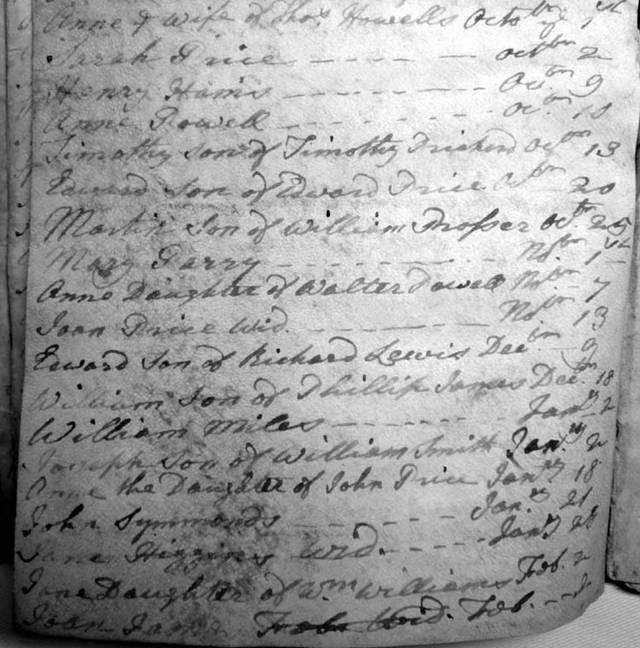 Anne ye wife of Thos Howells Octobr ye 1st
Sarah Price - - - - - octbr 2
Henry Harris - - - - - - Octbr 9
Anne Powell - - - - - - - - octbr 10
Timothy son of Timothy Prichard Octbr 13
Edward Son of Edward Price Octbr 20
Martin Son of William Prosser Octbr 25
Mary Parry - - - - - - - - - Nobr 1st
Anne Daughter of Walter Powell Nobr 7
Joan Price Wid. - - - - - - - Nobr 13
Edward Son of Richard Lewis Decbr 9
William Son of Phillip James Decbr 18
William Miles - - - - - - - Janry 2
Joseph Son of William Smith Janry 2
Anne the Daughter of John Price Janry 18
John Symmonds - - - - - - Janry 21
Jane Higgins Wid. - - - - - Janry 28
Jane Daughter of Wm Williams Feb. 2
Joan James Wid. Feb. - -